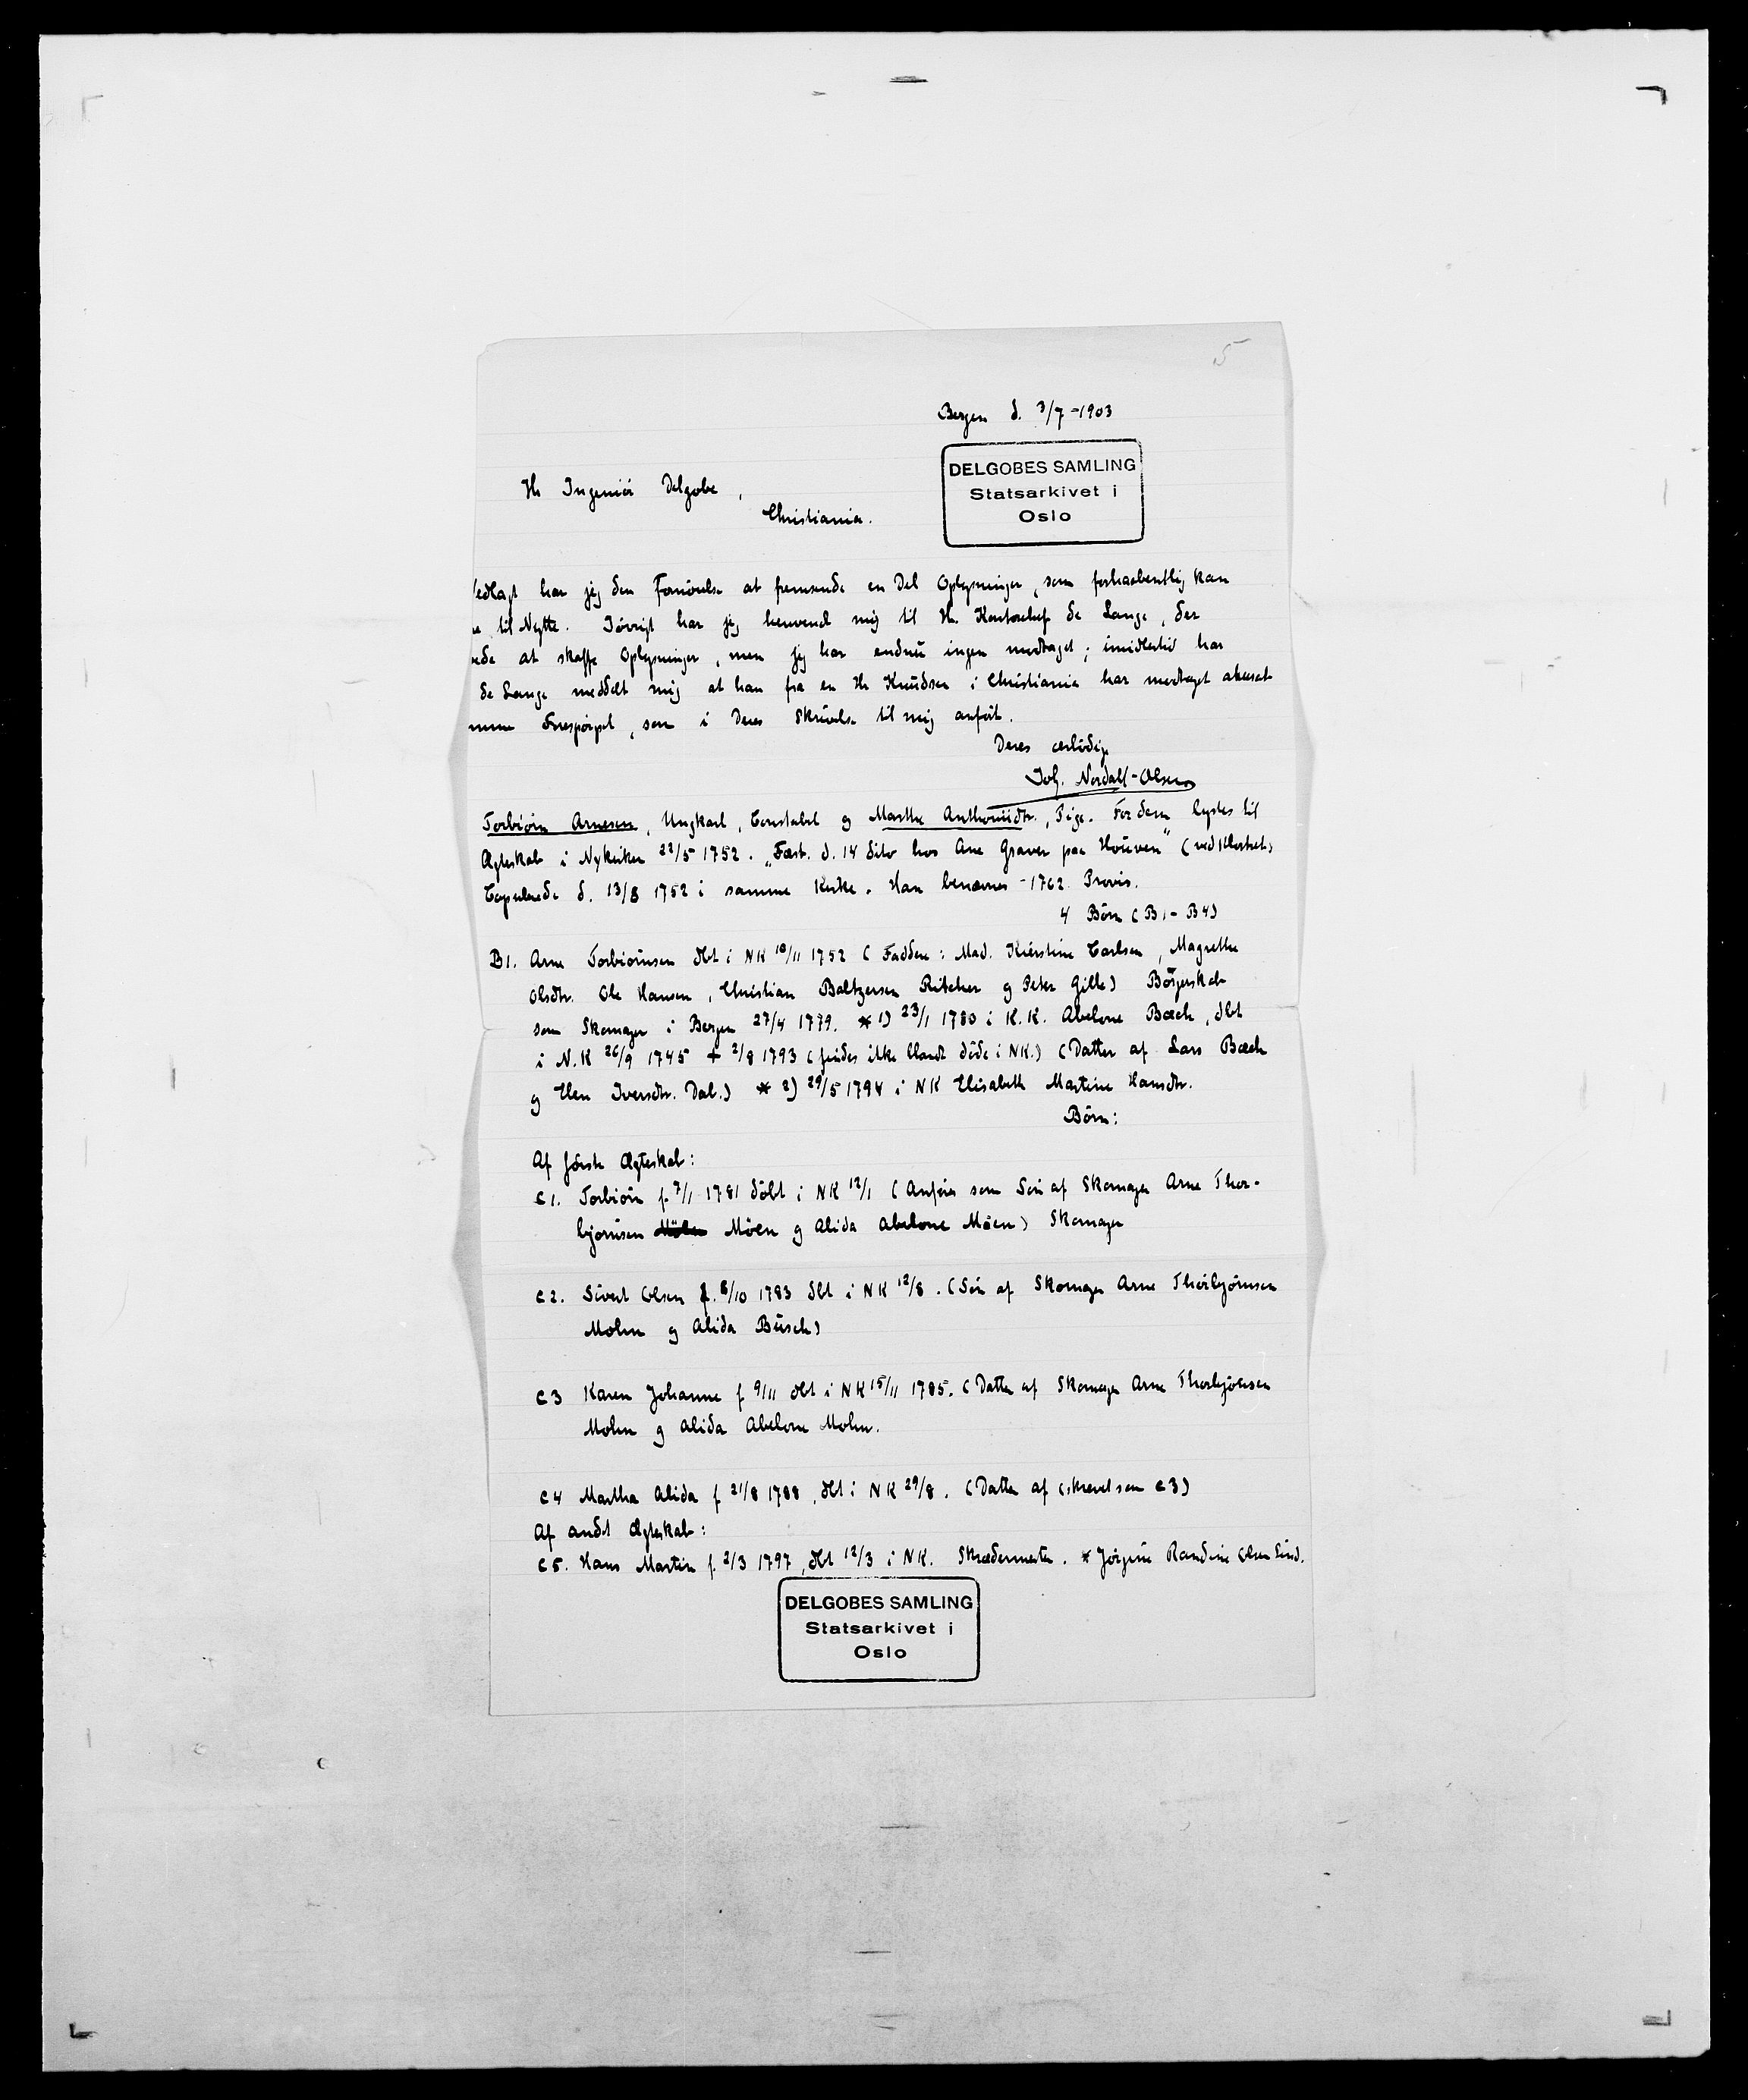 5
Bergen d. 3/7-1903
DELGOBES SAMLING
Statsarkivet i
Oslo
Hr Ingeniör Delgobe,
Christiania.
edlagt har jeg den Fornöielse at fremsende en Del Oplysninger, som forhaabentlig kan
til Nytte. Iövrigt har jeg henvendt mig til Hr. Kontorchef de Lange, der
ede at skaffe Oplysninger, men jeg har endnu ingen modtaget; imidlertid har
de Lange meddelt mig at han fra en Hr Knudsen i Christiania har modtaget akurat
mme Forespörgsel, som i Deres Skrivelse til mig anfört.
Deres ærbödige
Joh. Nordahl-Olsen
Torbiörn Arnesen, Ungkarl, Constabel og Marthe Anthonüdtr., Pige. For dem lystes til
Ægteskab i Nykirken 22/5 1752. "Fæst. d. 14 dito hos Ane Graver paa Houven" (ved Klostret)
Copulerede d. 13/8 1752 i samme Kirke. Han benævnes -1762 Provis.
4 Börn (B1-B4)
B1. Arne Torbiörnsen dbt i NK 10/11 1752 (Faddere: Mad. Kierstine Carlsen, Magrethe
Olsdtr. Ole Hansen, Christian Baltzersen Ritcher og Peter Gille) Borgerskab
som Skomager i Bergen 27/4 1779. * 1) 23/1 1780 i K.K. Abelone Bœch, dbt
i N.K 26/9 1745 + 2/8 1793 (findes ikke blandt döde i NK.) (Datter af Lars Bœch
og Elen Iversdtr. Dal.) * 2) 29/5 1794 i NK Elisabeth Martine Hansdtr.
Börn:
Af förste Ægteskab:
C1. Torbiörn f. 7/1 1781 döbt i NK 12/1 (Anföres som Sön af Skomager Arne Thor-
björnsen Möen og Alida Abelone Möen) Skomager
C2. Sivert Olsen f. 8/10 1783 dbt i NK 12/8. (Sön af Skomager Arne Thorbjörnsen
Mohn og Alida Büsch)
C3 Karen Johanne f 9/11 dbt i NK 15/11 1785. (Datter af Skomager Arne Thorbjörnsen
Mohn og Alida Abelone Mohn.
C4 Martha Alida f 21/8 1788, dbt i NK 29/8. (Datter af (skrevet som C3)
Af andet Ægteskab:
C5. Hans Martin f. 2/3 1797, dbt 12/3 i NK. Skrædermester. * Jörgine Randine Olsen Lind.
DELGOBES SAMLING
Statsarkivet i
Oslo